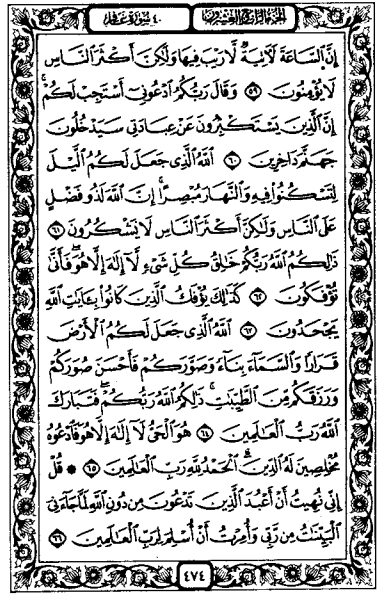 الجزء الرابع والعشرون ٤٠ سورة غافر
إِنَّ ٱلسَّاعَةَ لَأٓتِيَةٌ لَّا رَيْبَ فِيهَا وَلَٰكِنَّ أَكْثَرَ ٱلنَّاسِ
لَا يُؤْمِنُونَ ٥٩ وَقَالَ رَبُّكُمُ ٱدْعُونِىٓ أَسْتَجِبْ لَكُمْ ۚ
إِنَّ ٱلَّذِينَ يَسْتَكْبِرُونَ عَنْ عِبَادَتِى سَيَدْخُلُونَ
جَهَنَّمَ دَاخِرِينَ ٦٠ ٱللَّهُ ٱلَّذِى جَعَلَ لَكُمُ ٱلَّيْلَ
لِتَسْكُنُوا۟ فِيهِ وَٱلنَّهَارَ مُبْصِرًا ۚ إِنَّ ٱللَّهَ لَذُو فَضْلٍ
عَلَى ٱلنَّاسِ وَلَٰكِنَّ أَكْثَرَ ٱلنَّاسِ لَا يَشْكُرُونَ ٦١
ذَٰلِكُمُ ٱللَّهُ رَبُّكُمْ خَٰلِقُ كُلِّ شَىْءٍ لَّآ إِلَٰهَ إِلَّا هُوَ ۖ فَأَنَّىٰ
تُؤْفَكُونَ ٦٢ كَذَٰلِكَ يُؤْفَكُ ٱلَّذِينَ كَانُوا۟ بِـَٔايَٰتِ ٱللَّهِ
يَجْحَدُونَ ٦٣ ٱللَّهُ ٱلَّذِى جَعَلَ لَكُمُ ٱلْأَرْضَ
قَرَارًا وَٱلسَّمَآءَ بِنَآءً وَصَوَّرَكُمْ فَأَحْسَنَ صُوَرَكُمْ
وَرَزَقَكُم مِّنَ ٱلطَّيِّبَٰتِ ۚ ذَٰلِكُمُ ٱللَّهُ رَبُّكُمْ ۖ فَتَبَارَكَ
ٱللَّهُ رَبُّ ٱلْعَٰلَمِينَ ٦٤ هُوَ ٱلْحَىُّ لَآ إِلَٰهَ إِلَّا هُوَ فَٱدْعُوهُ
مُخْلِصِينَ لَهُ ٱلدِّينَ ۗ ٱلْحَمْدُ لِلَّهِ رَبِّ ٱلْعَٰلَمِينَ ٦٥ ۞ قُلْ
إِنِّى نُهِيتُ أَنْ أَعْبُدَ ٱلَّذِينَ تَدْعُونَ مِن دُونِ ٱللَّهِ لَمَّا جَآءَنِىَ
ٱلْبَيِّنَٰتُ مِن رَّبِّى وَأُمِرْتُ أَنْ أُسْلِمَ لِرَبِّ ٱلْعَٰلَمِينَ ٦٦
٤٧٤